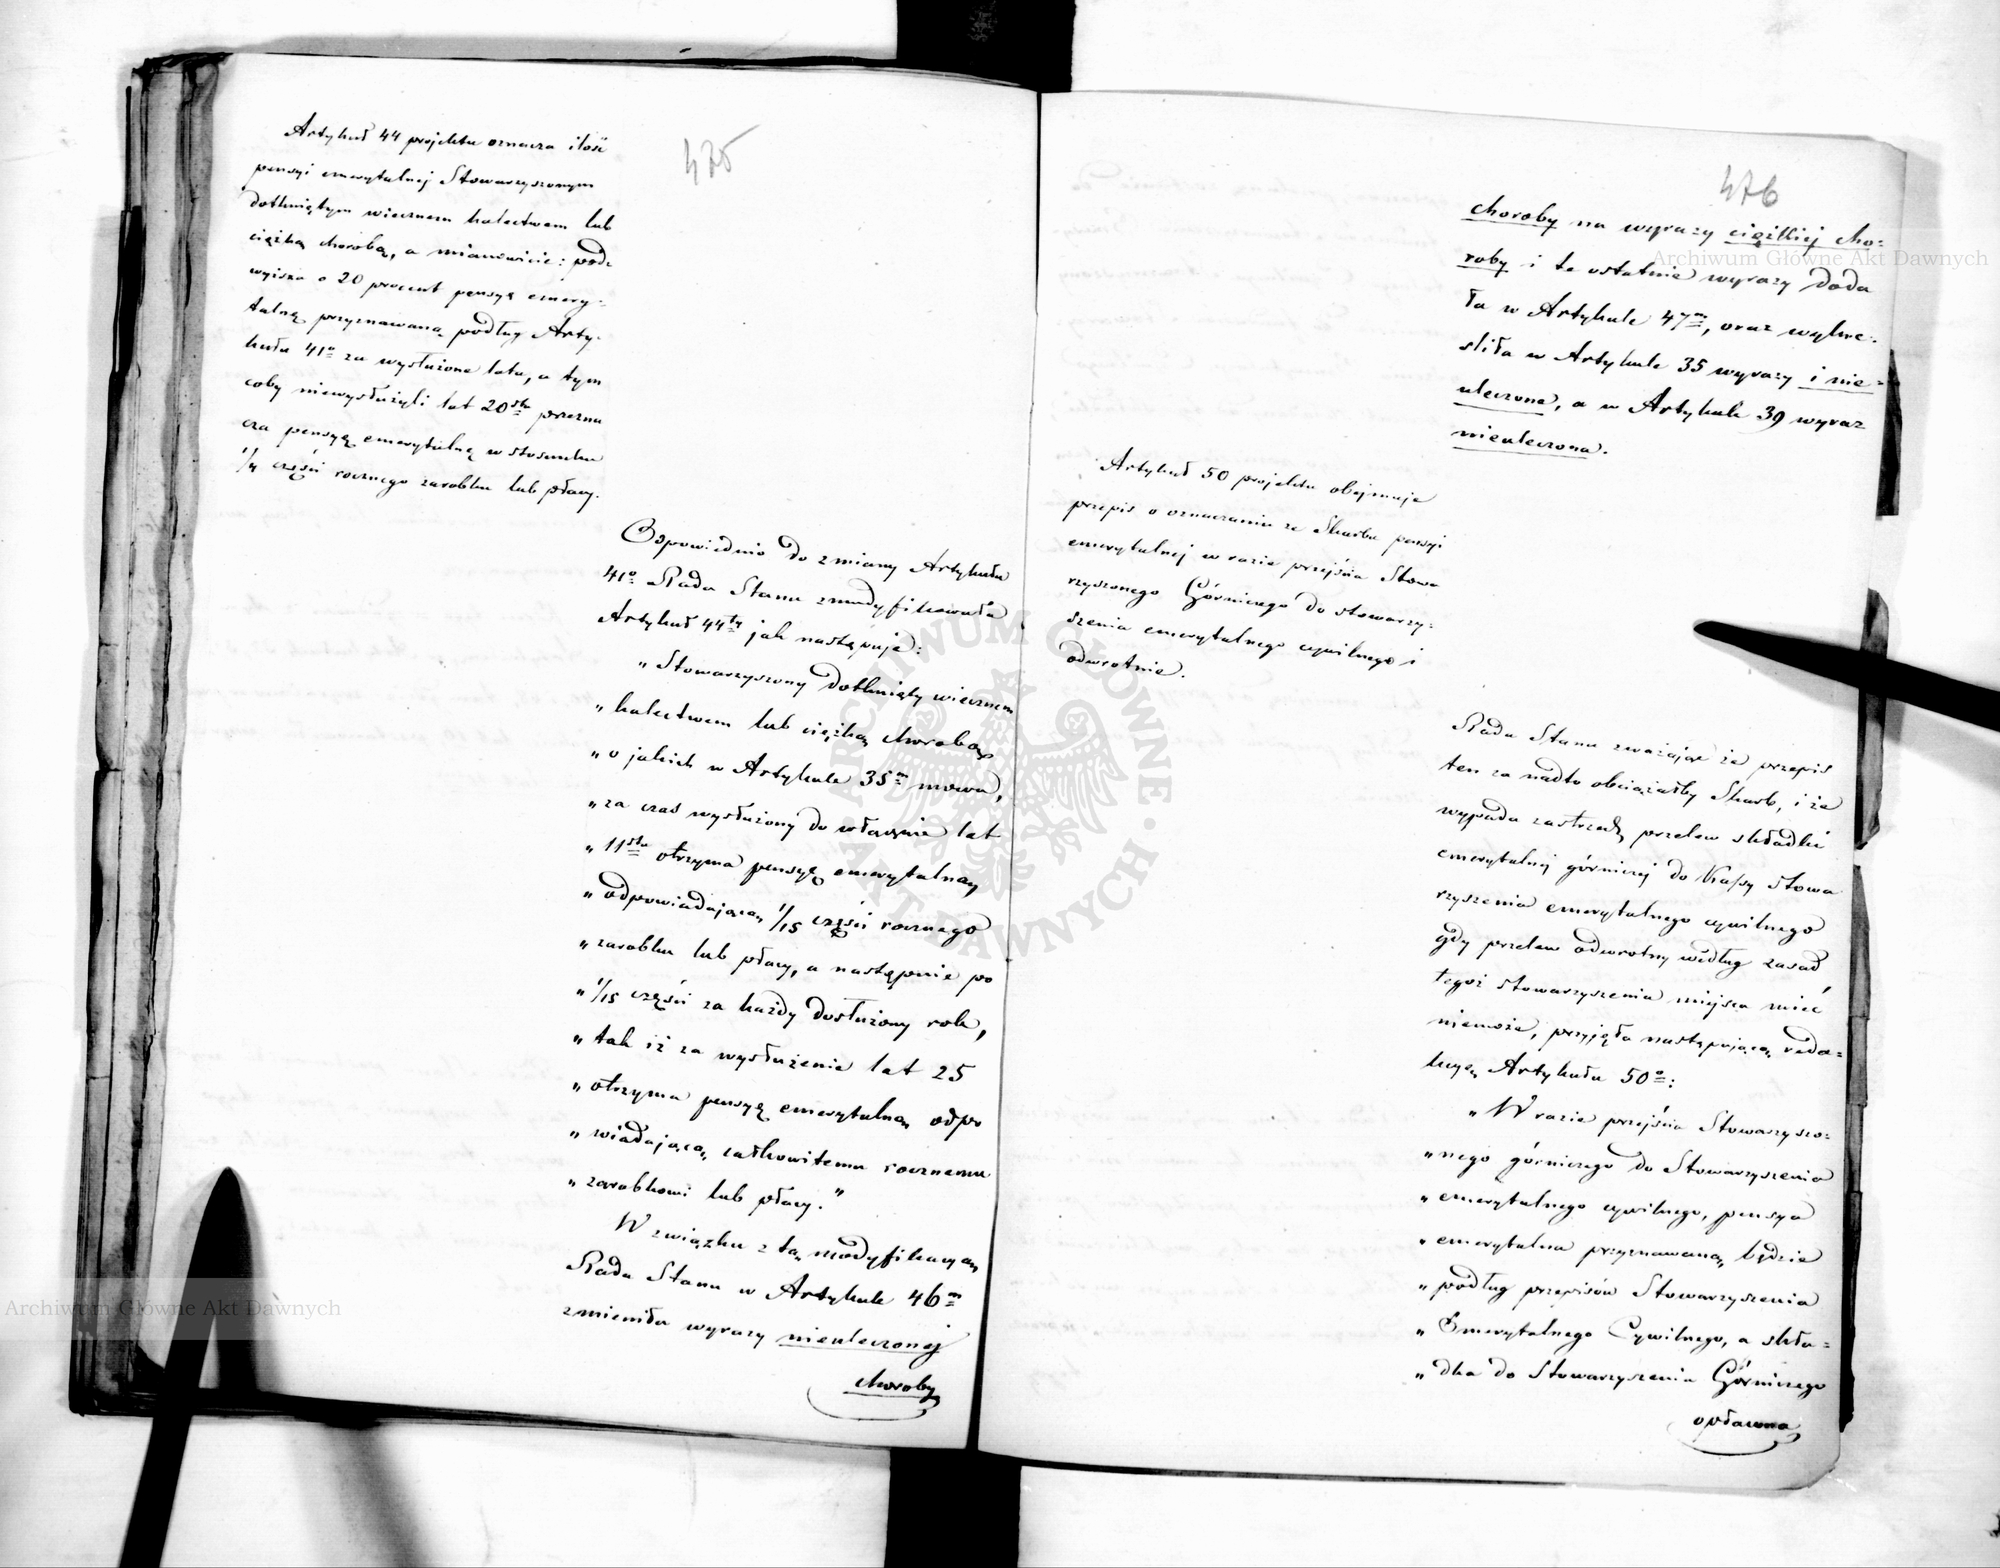 475
Artykuł 44 projektu oznacza ilość
pensyi emerytalnej Stowarzyszonym
dotkniętym wiecznem kalectwem lub
ciężką chorobą, a mianowicie: pod-
wyiska o 20 procent pensyę emery-
talną przyznawaną podług Arty-
kułu 41º za wysłużone lata, a tym
coby niewysłużyli lat 20stu przezna
cza pensyę emerytalną w stosunku
1/4 części rocznego zarobku lub płacy.
Odpowiednio do zmiany Artykułu
41º Rada Stanu zmodyfikowała
Artykuł 44ty jak następuje:
„Stowarzyszony dotknięty wiecznem
„kalectwem lub ciężką chorobą,
„o jakich w Artykule 35m mowa,
„za czas wysłużony do włącznie lat
„11stu otrzyma pensyę emerytalną
„odpowiadającą 1/15 części rocznego
„zarobku lub płacy, a następnie po
„1/15 części za każdy dosłużony rok,
„tak iż za wysłużenie lat 25
„otrzyma pensyę emerytalną odpo
„wiadającą całkowitemu rocznemu
„zarobkowi lub płacy."
W związku z tą modyfikacyą
Rada Stanu w Artykule 46m
zmieniła wyrazy nieuleczonej
choroby
476
choroby na wyrazy ciężkiej cho-
roby i te ostatnie wyrazy doda
ła w Artykule 47m, oraz wykre-
śliła w Artykule 35 wyrazy i nie-
uleczone, a w Artykule 39 wyraz
nieuleczona.
Artykuł 50 projektu obejmuje
przepis o oznaczaniu ze Skarbu pensyi
emerytalnej w razie przejścia Stowa
rzyszonego Górniczego do stowarzy-
szenia emerytalnego cywilnego i
odwrotnie.
Rada Stanu zważając że przepis
ten za nadto obciążałby Skarb, i że
wypada zastrzedz przelew składki
emerytalnej górniczej do Kassy Stowa
rzyszenia emerytalnego cywilnego
gdy przelew odwrotny według zasad
tegoż stowarzyszenia miejsca mieć
niemoże, przyjęła następującą reda-
kcyą Artykułu 50º:
„W razie przejścia Stowarzyszo-
„nego górniczego do Stowarzyszenia
„emerytalnego cywilnego, pensya
„emerytalna przyznawaną będzie
„podług przepisów Stowarzyszenia
„Emerytalnego Cywilnego, a skła-
„dka do Stowarzyszenia Górniczego
opłacona
ARCHIWUM GŁÓWNE · AKT DAWNYCH ·
Archiwum Główne Akt Dawnych
Archiwum Główne Akt Dawnych